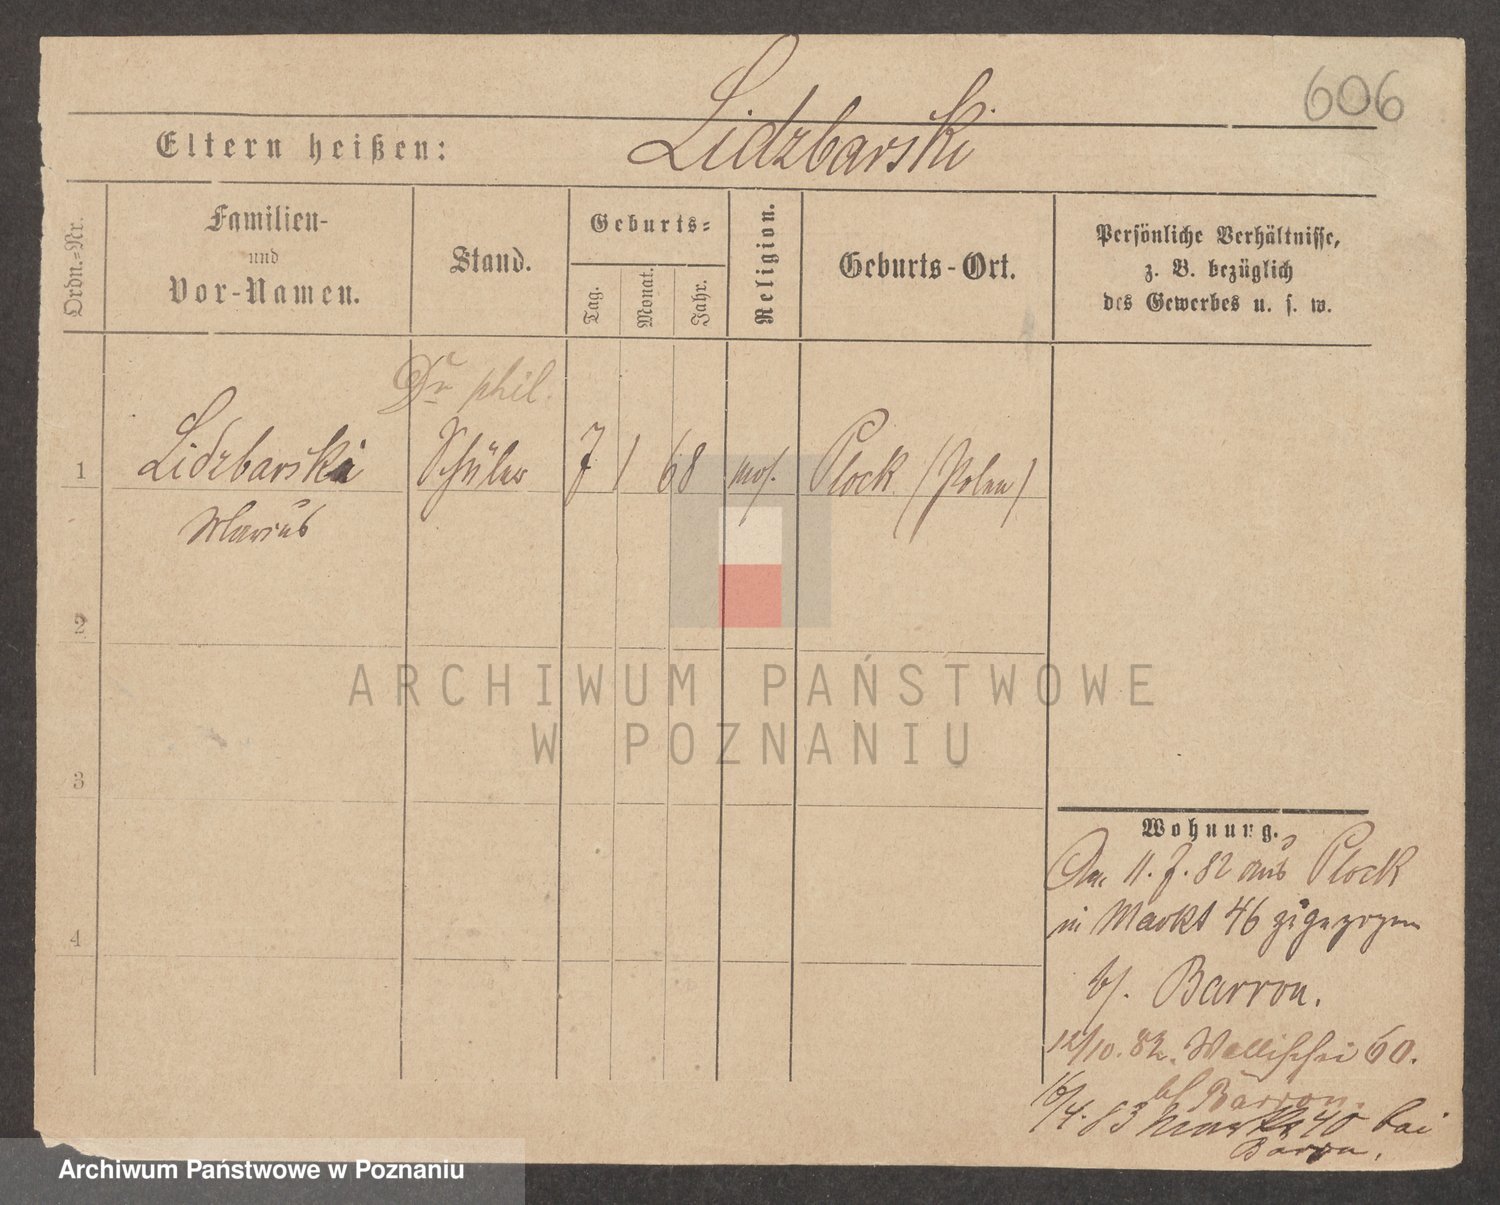 606
Lidzbarski
Eltern heißen:
Ordn.-Nr.
Familien-
und
Vor-Namen.
Stand.
Geburts-
Tag.
Monat.
Jahr.
Religion.
Geburts-Ort.
Persönliche Verhältnisse,
z. B. bezüglich
des Gewerbes u. s. w.
Dr phil.
1 Lidzbarski Schüler 7 1 68 mos. Plock (Polen)
Marius
2
3
4
Wohnung.
Am 11. 7. 82 aus Plock
in Markt 46 zugezogen
b/. Barron.
12/10. 82. Wallischei 60.
b/ Barron.
16/4. 83 Markt 40 bei
Barron.
ARCHIWUM PAŃSTWOWE
W POZNANIU
Archiwum Państwowe w Poznaniu